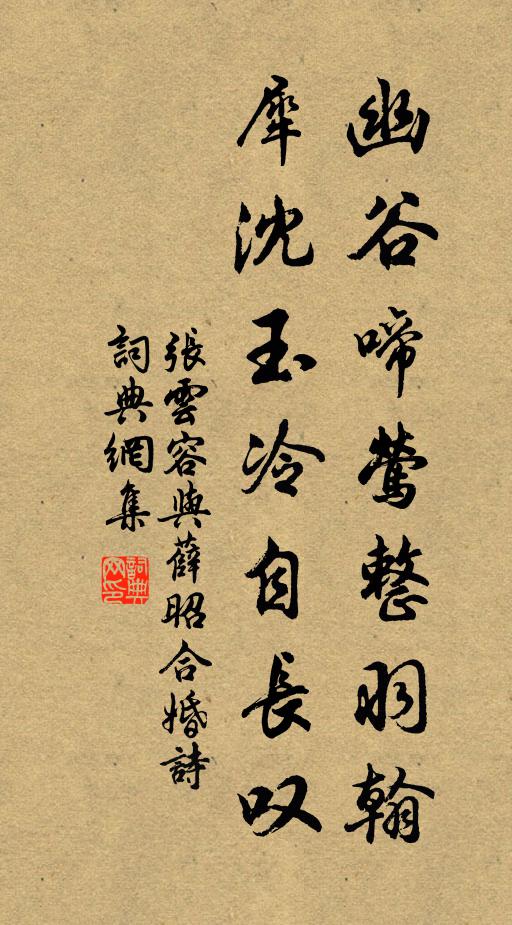 幽谷啼鶯整羽翰
犀沈玉冷自長叹
張雲容與薛昭合婚詩
詞典網集
詞典網印